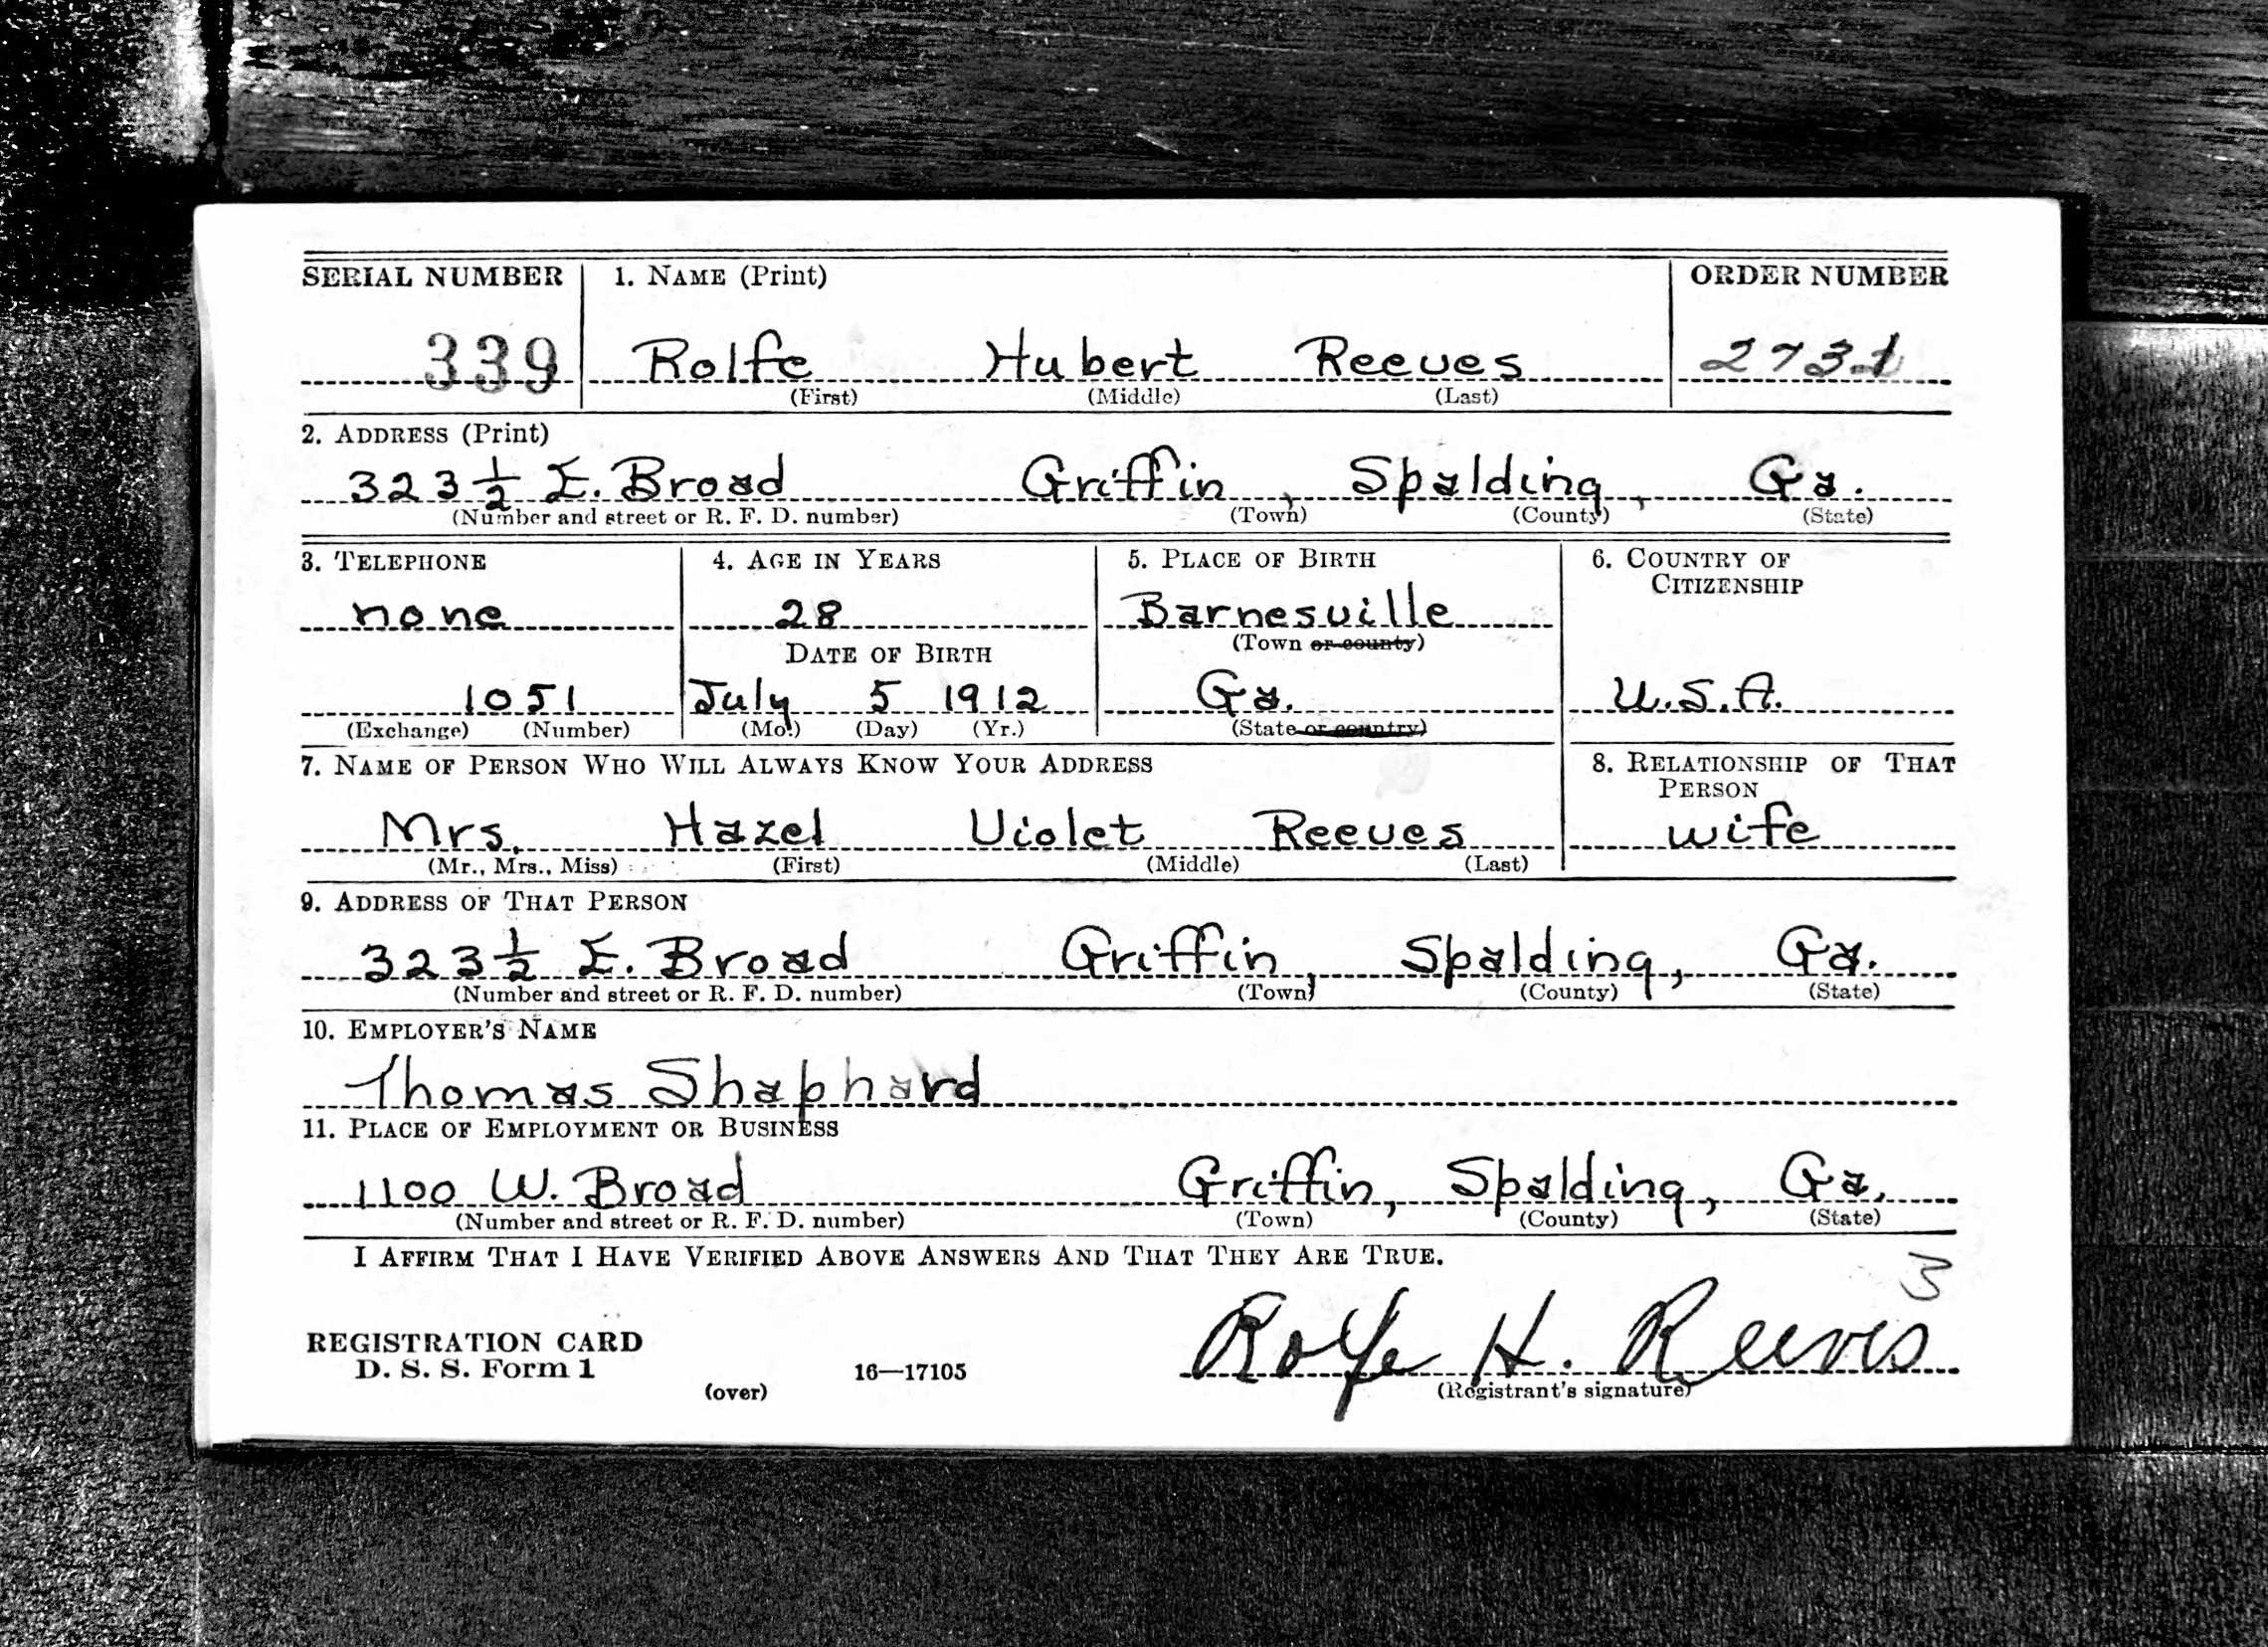 SERIAL NUMBER 1. NAME (Print) ORDER NUMBER
339 Rolfe Hubert Reeves 2731
(First) (Middle) (Last)
2. ADDRESS (Print)
323 1/2 E. Broad Griffin, Spalding, Ga.
(Number and street or R. F. D. number) (Town) (County) (State)
3. TELEPHONE 4. AGE IN YEARS 5. PLACE OF BIRTH 6. COUNTRY OF
CITIZENSHIP
none 28 Barnesville
DATE OF BIRTH (Town or county)
1051 July 5 1912 Ga. U.S.A.
(Exchange) (Number) (Mo.) (Day) (Yr.) (State or country)
7. NAME OF PERSON WHO WILL ALWAYS KNOW YOUR ADDRESS 8. RELATIONSHIP OF THAT
PERSON
Mrs. Hazel Violet Reeves wife
(Mr., Mrs., Miss) (First) (Middle) (Last)
9. ADDRESS OF THAT PERSON
323 1/2 E. Broad Griffin, Spalding, Ga.
(Number and street or R. F. D. number) (Town) (County) (State)
10. EMPLOYER'S NAME
Thomas Shaphard
11. PLACE OF EMPLOYMENT OR BUSINESS
1100 W. Broad Griffin, Spalding, Ga.
(Number and street or R. F. D. number) (Town) (County) (State)
I AFFIRM THAT I HAVE VERIFIED ABOVE ANSWERS AND THAT THEY ARE TRUE.
3
REGISTRATION CARD Rolfe H. Reeves
D. S. S. Form 1 16—17105
(over) (Registrant's signature)